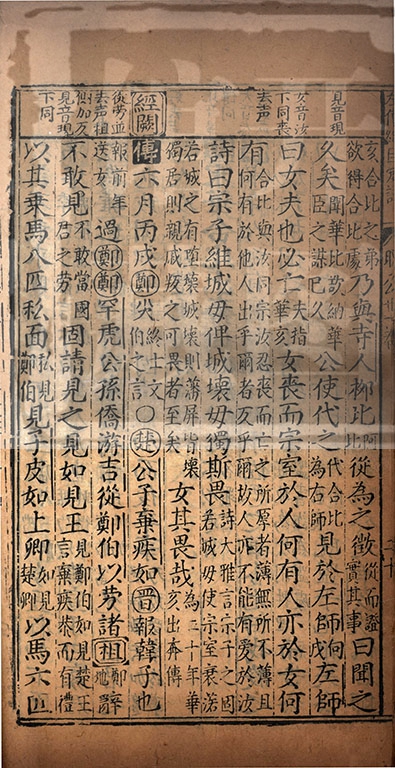 見音現
女音汝
下同喪
去声
從勞並
去声柤
側加反
見音現
下同
亥合比之弟欲得合比處乃與寺人柳比比阿從為之徵從而證實其事曰聞之
久矣聞華比欲納華臣之謀已久公使代之代合比為右師見於左師向戌左師
曰女夫也必亡夫指華亥女喪而宗室於人何有人亦於女何
有合比與汝同宗汝忍喪而亡之所厚者薄無所不薄何有於他人出乎爾者反乎爾故人亦不能有愛於汝
詩曰宗子維城毋俾城壞毋獨斯畏詩大雅言宗子之固若城毋使宗室衰落
若城之有頹壞城壞則藩屏皆壞獨居則親戚疲之可畏者至矣女其畏哉為二十年華亥出奔傳
經闕
傳六月丙戌鄭災終士文伯之言〇楚公子棄疾如晉報韓子也
報前年送女過鄭鄭罕虎公孫僑游吉從鄭伯以勞諸柤鄭地辭
不敢見不敢當國君之勞固請見之見如見王見鄭伯如見楚王言棄疾恭而有禮
以其乘馬八匹私面私見鄭伯見子皮如上卿如見楚卿以馬六匹